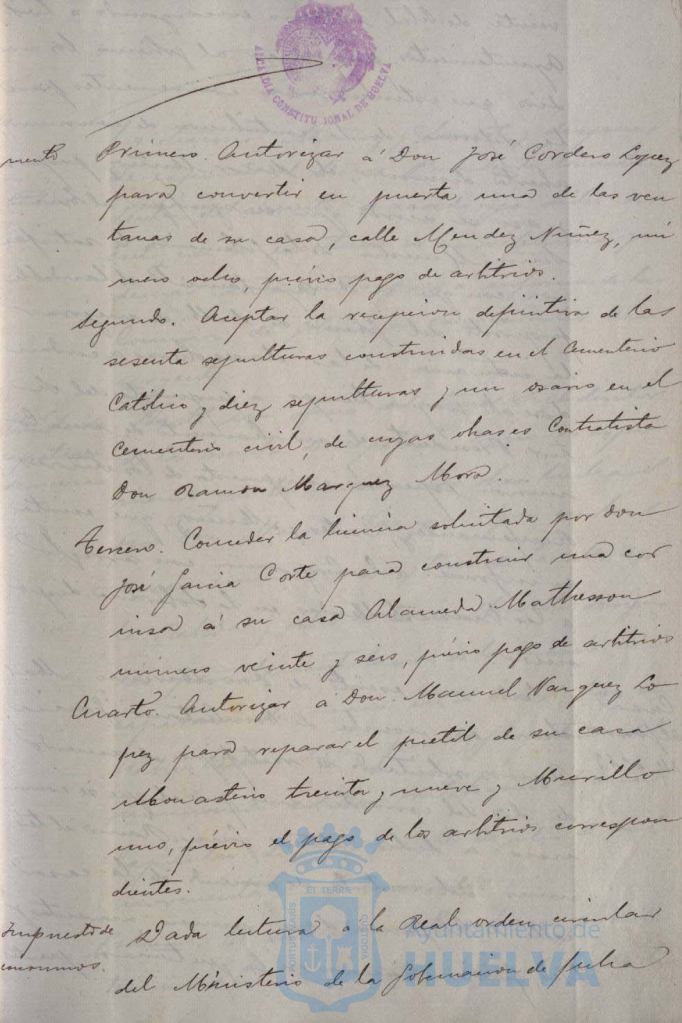 ALCALDIA CONSTITUCIONAL DE HUELVA
mento
Primero. Autorizar á Don José Cordero Lopez
para convertir en puerta una de las ven
tanas de su casa, calle Mendez Nuñez, nú
mero ocho, prévio pago de arbitrios.
Segundo. Aceptar la recepcion definitiva de las
sesenta sepulturas construidas en el Cementerio
Católico y diez sepulturas y un osario en el
Cementerio civil, de cuyas obras es Contratista
Don Ramon Marquez Mora.
Tercero. Conceder la licencia solicitada por Don
José Garcia Corte para construir una cor
nisa á su casa Alameda Mathesson
número veinte y séis, prévio pago de arbitrios
Cuarto. Autorizar á Don Manuel Vazquez Lo
pez para reparar el pretil de su casa
Monasterio treinta y nueve y Murillo
uno, prévio el pago de los arbitrios correspon
dientes.
Impuesto de
consumos.
Dada lectura á la Real orden circular
del Ministerio de la Gobernacion de fecha
Ayuntamiento de
HUELVA